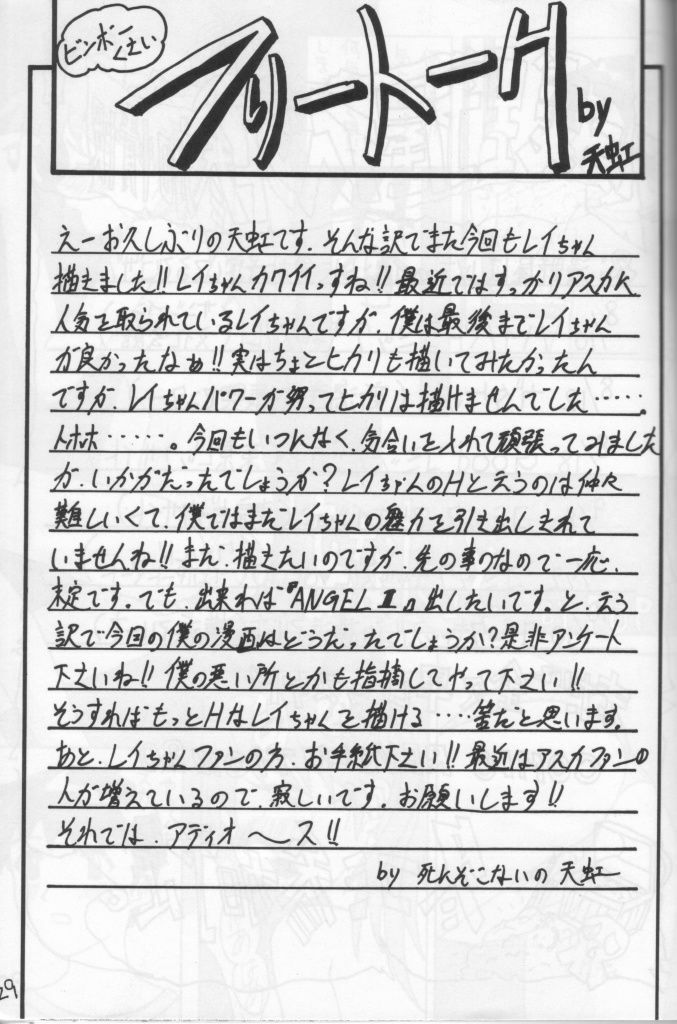 ビンボー
くさい
フリートーH
by
天虹
えーお久しぶりの天虹です、そんな訳でまた今回もレイちゃん
描きました!!レイちゃんカワイイっすね!!最近ではすっかりアスカに
人気を取られているレイちゃんですが、僕は最後までレイちゃん
が良かったなぁ!!実はちょとヒカリも描いてみたかったん
ですが、レイちゃんパワーが勇ってヒカリは描けませんでした……。
トホホ……。今回もいつになく、気合いを入れて頑張ってみました
が、いかがだったでしょうか?レイちゃんのHと云うのは仲々
難しいくて、僕ではまだレイちゃんの魅力を引き出しきれて
いませんね!!まだ、描きたいのですが、先の事なので一応、
未定です。でも、出来れば『ANGELⅡ』出したいです。と、云う
訳で今回の僕の漫画はどうだったでしょうか?是非アンケート
下さいね!!僕の悪い所とかも指摘してやって下さい!!
そうすればもっとHなレイちゃんを描ける….筈だと思います。
あと、レイちゃんファンの方、お手紙下さい!!最近はアスカファンの
人が増えているので、寂しいです。お願いします!!
それでは、アディオ〜ス!!
by 死んぞこないの天虹
29